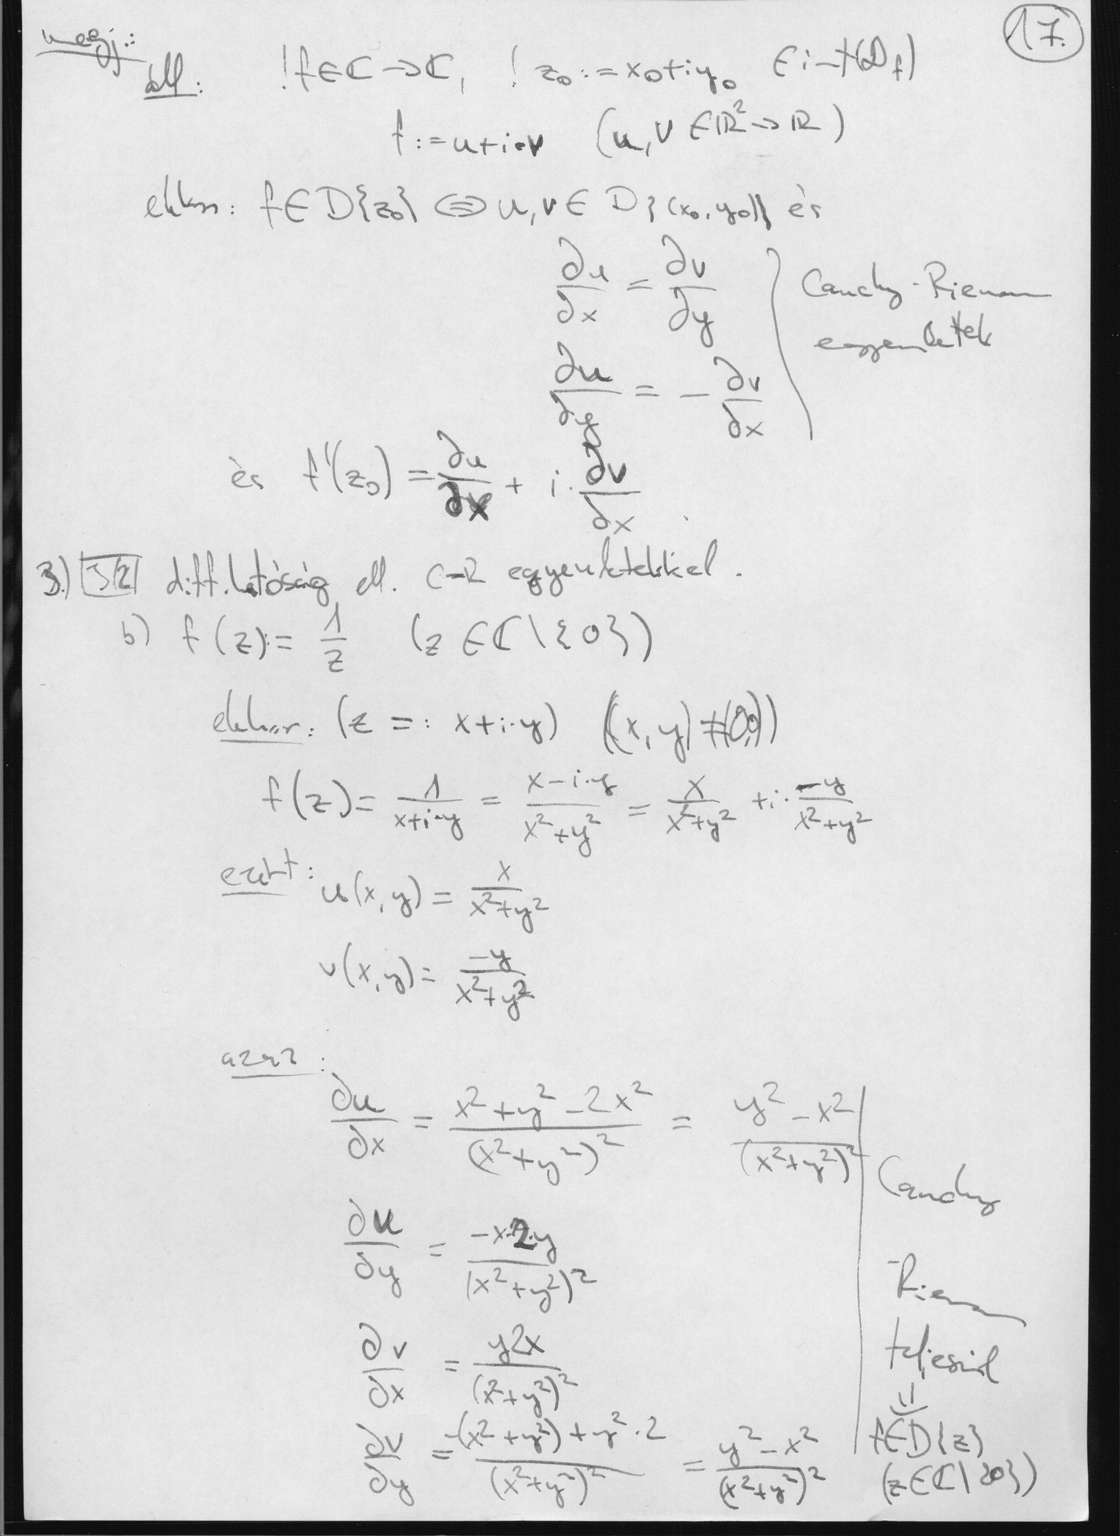 17.
megj.:
áll: !f∈ℂ→ℂ, ! z₀ := x₀+iy₀ ∈ int(D_f)
f := u+i·v (u,v ∈ℝ²→ℝ)
ekkor: f∈D{z₀} ⇔ u,v∈ D{(x₀,y₀)} és
∂u/∂x = ∂v/∂y
Cauchy-Rieman
egyenletek
∂u/∂y = −∂v/∂x
és f'(z₀) = ∂u/∂x + i·∂v/∂x
3.) 3/2 diff.hatóság ell. C-R egyenletekkel.
b) f(z) := 1/z (z∈ℂ\{0})
ekkor: (z =: x+i·y) ((x,y)≠(0,0))
f(z) = 1/(x+i·y) = (x−i·y)/(x²+y²) = x/(x²+y²) + i·(−y)/(x²+y²)
ezért: u(x,y) = x/(x²+y²)
v(x,y) = −y/(x²+y²)
azaz:
∂u/∂x = (x²+y²−2x²)/(x²+y²)² = (y²−x²)/(x²+y²)²
∂u/∂y = −x·2y/(x²+y²)²
∂v/∂x = y2x/(x²+y²)²
∂v/∂y = (−(x²+y²)+y²·2)/(x²+y²)² = (y²−x²)/(x²+y²)²
Cauchy
Rieman
teljesül
⇓
f∈D{z}
(z∈ℂ\{0})